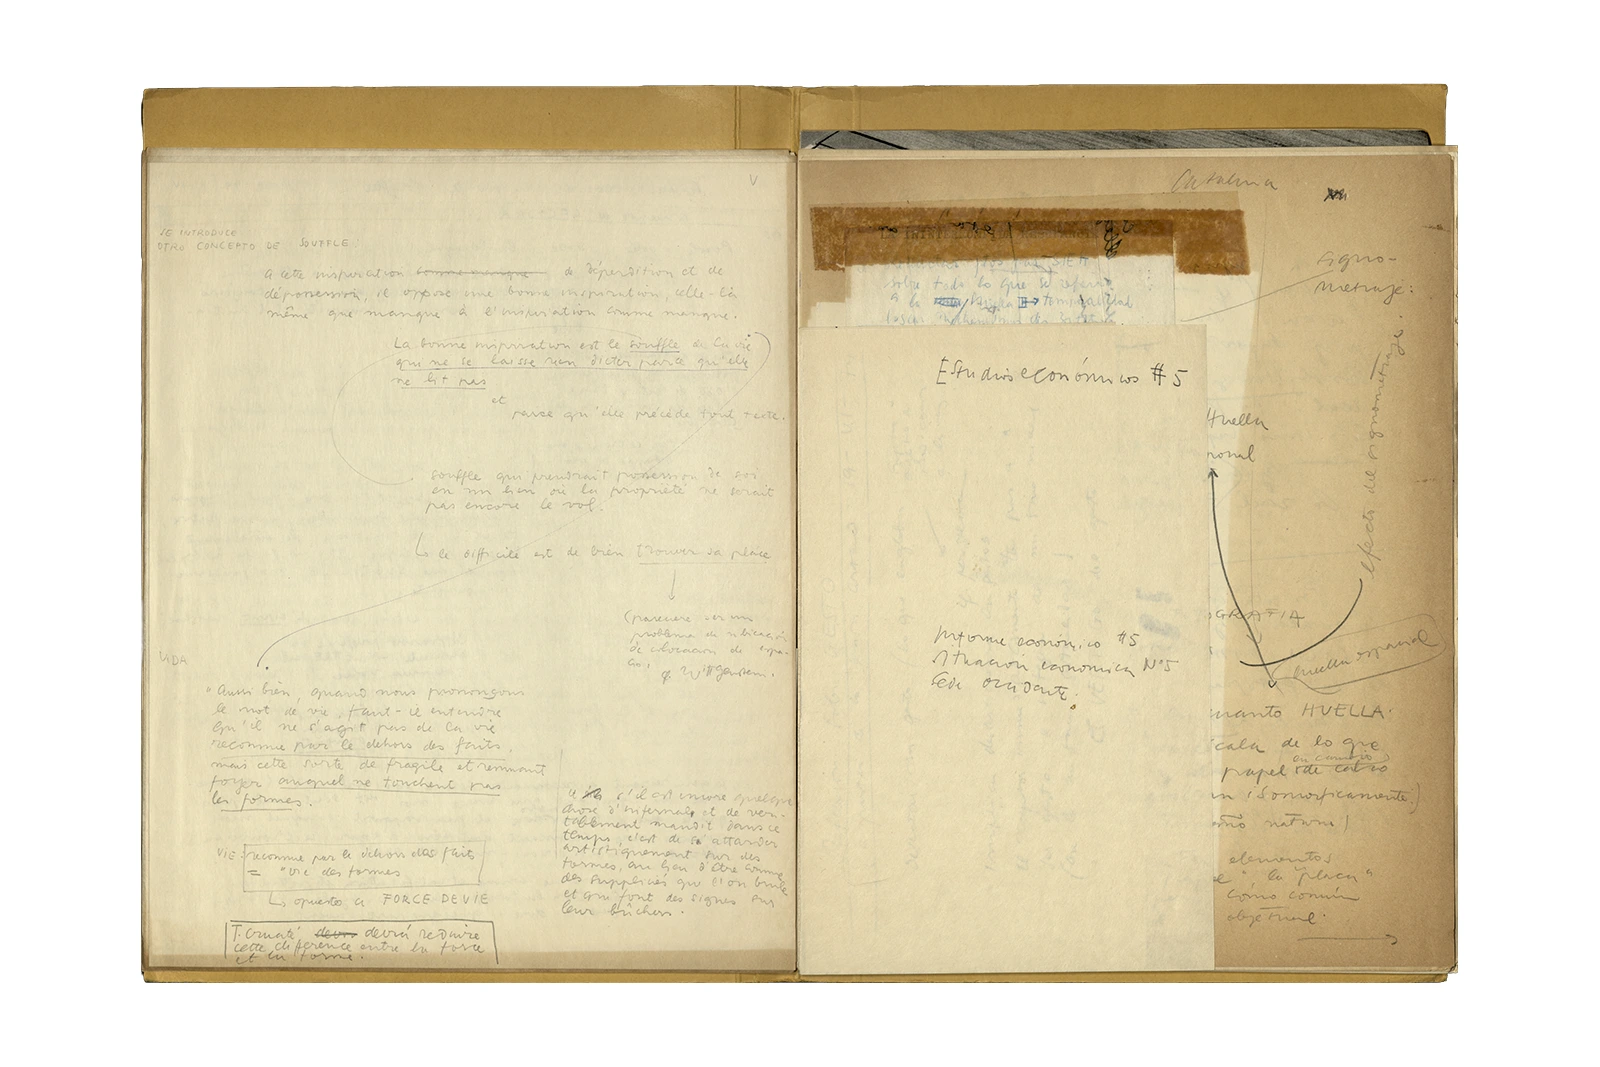 V
SE INTRODUCE
OTRO CONCEPTO DE SOUFFLE
A cette inspiration comme manque de déperdition et de
dépossession, il oppose une bonne inspiration, celle-là
même que manque à l'inspiration comme manque.
La bonne inspiration est le souffle de la vie
qui ne se laisse rien dicter parce qu'elle
ne lit pas
et
parce qu'elle précède tout texte.
Souffle qui prendrait possession de soi
en un lieu où la propriété ne serait
pas encore le vol.
↳ le difficile est de bien trouver sa place
(pareciera ser un
problema de ubicación
de colocación de espa-
cio.
cf Wittgenstein.
VIDA
"Aussi bien, quand nous prononçons
le mot de vie, faut-il entendre
qu'il ne s'agit pas de la vie
reconnue par le dehors des faits,
mais cette sorte de fragile et remuant
foyer auquel ne touchent pas
les formes.
VIE: reconnue par le dehors des faits
= "vie" des formes
↳ opuesto a FORCE DE VIE
devrá reduire
cette différence entre la force
et la forme.
s'il est encore quelque
chose d'infernal et de véri-
tablement maudit dans ce
temps, c'est de s'attarder
artistiquement sur des
formes, au lieu d'être comme
des suppliciés que l'on brûle
et qui font des signes sur
leur bûchers.
Catalina
signo-
metraje:
sobre todo lo que se refiere
a la temporalidad
Estudios económicos #5
Huella
efecto del signometraje.
Informe económico #5
Situación económica N°5
Sede Occidente.
OGRAFIA
huella espacial
cuanto HUELLA.
escala de lo que
en cambio
papel de calco
isomorficamente.)
natural)
elementos
"la placa"
cómo común
objetual.